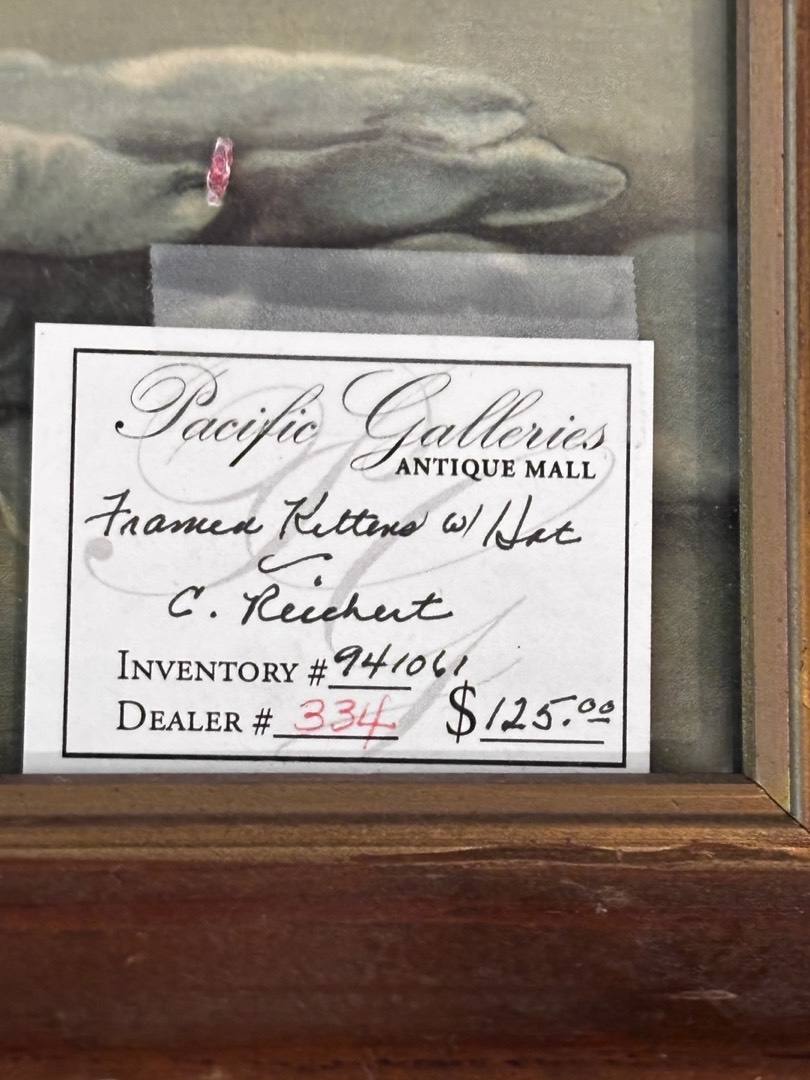 Pacific Galleries
ANTIQUE MALL
Framed Kittens w/ Hat
C. Reichert
INVENTORY # 941061
DEALER # 334 $125.00